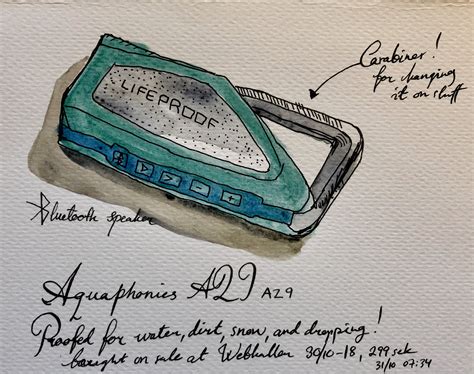 Carabiner!
for hanging
it on stuff
LIFEPROOF
Bluetooth speaker
Aquaphonics
Proofed for water, dirt, snow, and dropping!
bought on sale at Webhallen 30/10-18, 299 sek
31/10 07:34